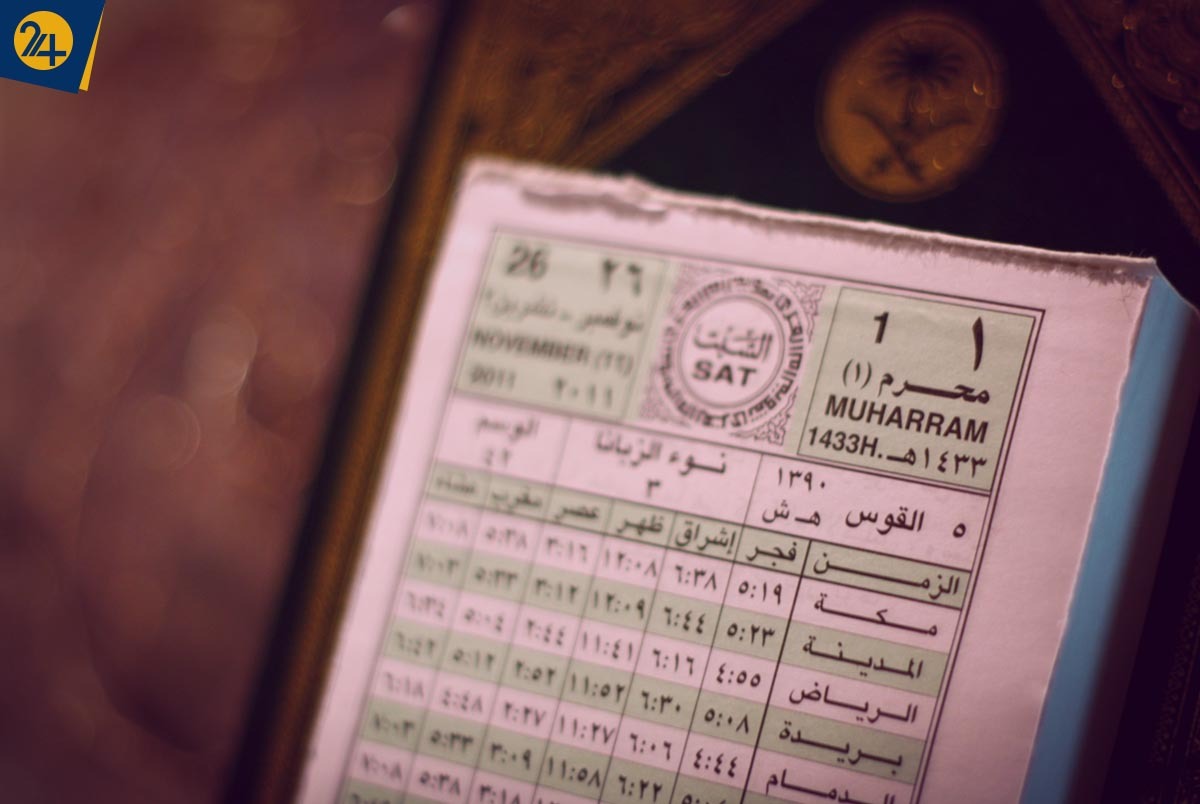 24
١ 1
محرم (١)
MUHARRAM
١٤٣٣هـ 1433H.
السبت
SAT
٢٦ 26
نوفمبر - تشرين٢
NOVEMBER (١١)
٢٠١١ 2011
٥ القوس ١٣٩٠ هـ ش
نوء الزبانا
٣
الوسم
٤٢
الزمن فجر إشراق ظهر عصر مغرب عشاء
مكة ٥:١٩ ٦:٣٨ ١٢:٠٨ ٣:١٦ ٥:٣٨ ٧:٠٨
المدينة ٥:٢٣ ٦:٤٤ ١٢:٠٩ ٣:١٢ ٥:٣٣ ٧:٠٣
الرياض ٤:٥٥ ٦:١٦ ١١:٤١ ٢:٤٤ ٥:٠٤ ٦:٣٤
بريدة ٥:٠٨ ٦:٣٠ ١١:٥٢ ٢:٥٢ ٥:١٢ ٦:٤٢
الدمام ٤:٤٤ ٦:٠٦ ١١:٢٧ ٢:٢٧ ٤:٤٨ ٦:١٨
٦:٢٢ ١١:٥٨ ٣:٠٩ ٥:٣٣ ٧:٠٣
٣:١٨ ٥:٣٨ ٧:٠٨